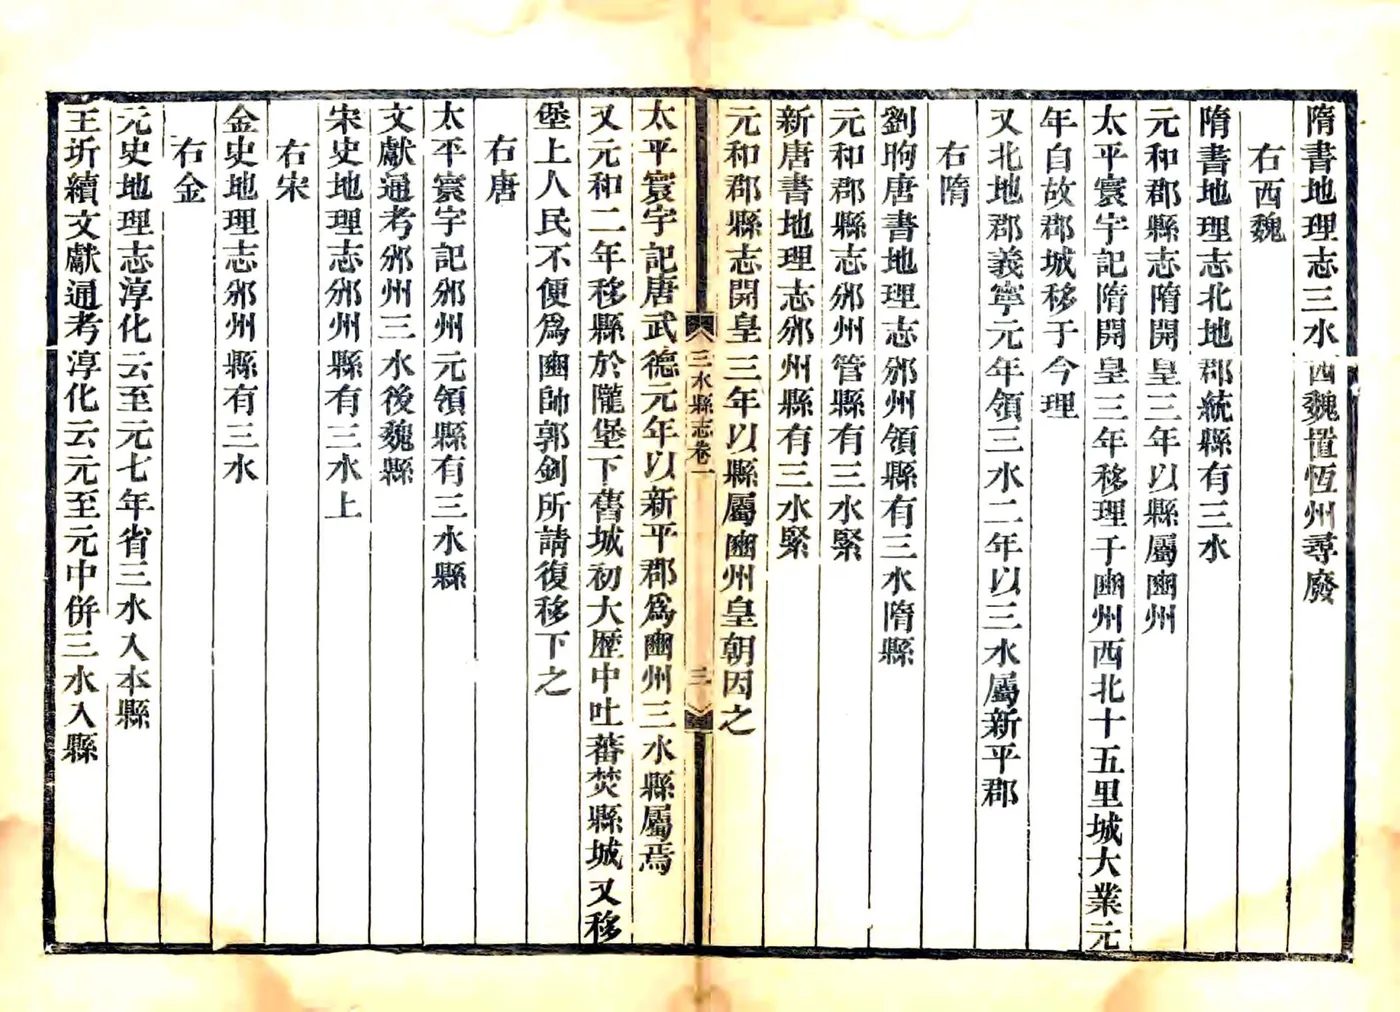 隋書地理志三水西魏置恆州尋廢
右西魏
隋書地理志北地郡統縣有三水
元和郡縣志隋開皇三年以縣屬豳州
太平寰宇記隋開皇三年移理于豳州西北十五里城大業元
年自故郡城移于今理
又北地郡義寧元年領三水二年以三水屬新平郡
右隋
劉昫唐書地理志邠州領縣有三水隋縣
元和郡縣志邠州管縣有三水緊
新唐書地理志邠州縣有三水緊
元和郡縣志開皇三年以縣屬豳州皇朝因之
三水縣志卷一
三
太平寰宇記唐武德元年以新平郡爲豳州三水縣屬焉
又元和二年移縣於隴堡下舊城初大歷中吐蕃焚縣城又移
堡上人民不便爲豳帥郭釗所請復移下之
右唐
太平寰宇記邠州元領縣有三水縣
文獻通考邠州三水後魏縣
宋史地理志邠州縣有三水上
右宋
金史地理志邠州縣有三水
右金
元史地理志淳化云至元七年省三水入本縣
王圻續文獻通考淳化云元至元中併三水入縣